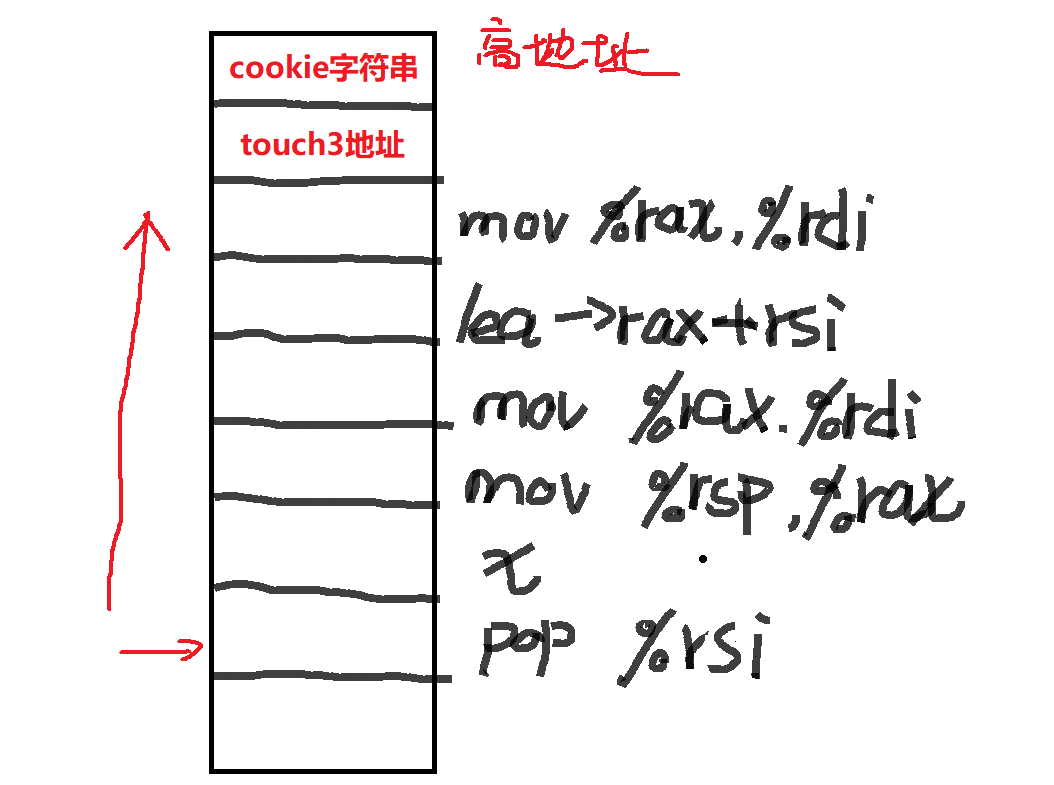 cookie字符串
高地址
touch3地址
mov %rax,%rdi
lea->rax+rsi
mov %rax.%rdi
mov %rsp,%rax
x
pop %rsi